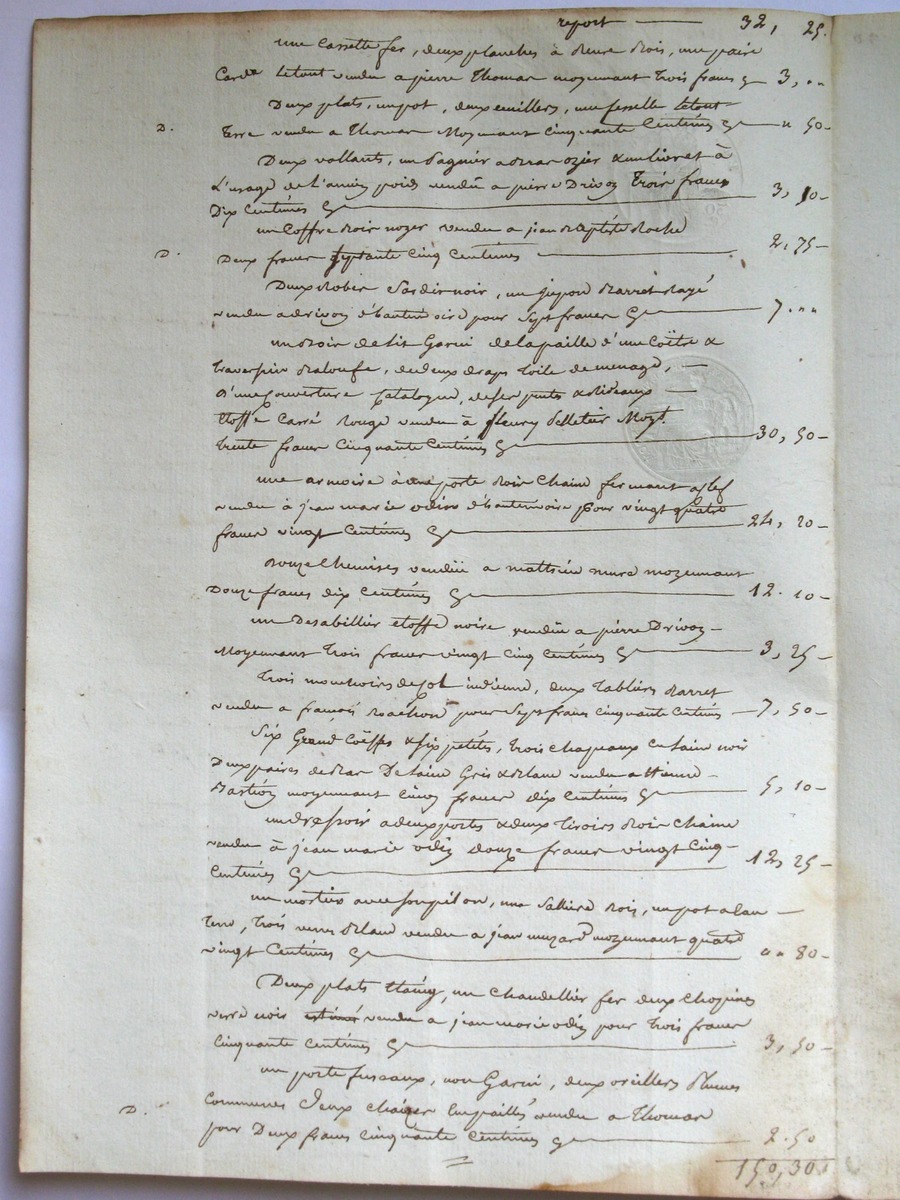 report 32, 25.
une Cassette fer, deux planches à Beure Bois, une paire
Carde letout vendu a pierre Thomas moyennant trois francs 3, ..
Deux plats, un pot, deux cuilliers, une fesselle letout
D. terre vendu a Thomas Moyennant cinquante Centimes " 50
Deux vollants, un Pagnier a bras ozier & un livret à
L'usage de l'ancien poids vendu a pierre Drivoz Trois francs
Dix Centimes 3, 10
un Coffre Bois noyer vendu a jean Baptiste Roche
D. Deux francs septante Cinq Centimes 2, 75
Deux Robes Cardis noir, un jupon Barret Rayé
vendu a drivoz d'hauterivoire pour Sept francs 7. ""
un Bois de lit Garni de la paille d'une Coëtre &
traversein Baloufe, de deux draps toile de menage,
D'une Couverture Catalogne, de ses pents & Rideaux
Etoffe Carré Rouge vendu à fleury Pelletier Moyt.
trente francs Cinquante Centimes 30, 50
une armoire à une porte Bois Chaine fermant a clef
vendu à jean marie odin d'hauterivoire pour vingt quatre
francs vingt Centimes 24, 20
Douze Chemises vendüe a matthieu mure moyennant
Douze francs dix Centimes 12. 10
un Desabillier etoffe noire vendu a pierre Drivoz
Moyennant trois francs vingt Cinq Centimes 3, 25
Trois mouchoirs de Col indienne, deux tabliers Barret
vendu a françois Bachon pour Sept francs cinquante Centimes 7, 50
Six Grande Coëffes & six petites, trois chapeaux en laine noir
Deux paires de Bas De laine Gris & Blanc vendu a Etienne
Bastion moyennant cinq francs dix Centimes 5, 10
un dressoir a deux portes & deux tiroirs Bois Chaine
vendu à jean marie odin douze francs vingt Cinq
Centimes 12, 25
un mortier avec son pilon, une Salliere Bois, un pot a l'au
terre, trois verres Blanc vendu a jean muzard moyennant quatre
vingt Centimes "" 80
Deux plats Etaing, un Chandellier fer deux Chopines
verre noir estimé vendu a jean marie odin pour trois francs
Cinquante Centimes 3, 50
un porte fuseaux, non Garni, deux oreillers Plumes
D. Communes deux chaizes Empaillés vendu a Thomas
pour Deux francs cinquante Centimes 2. 50
150, 30